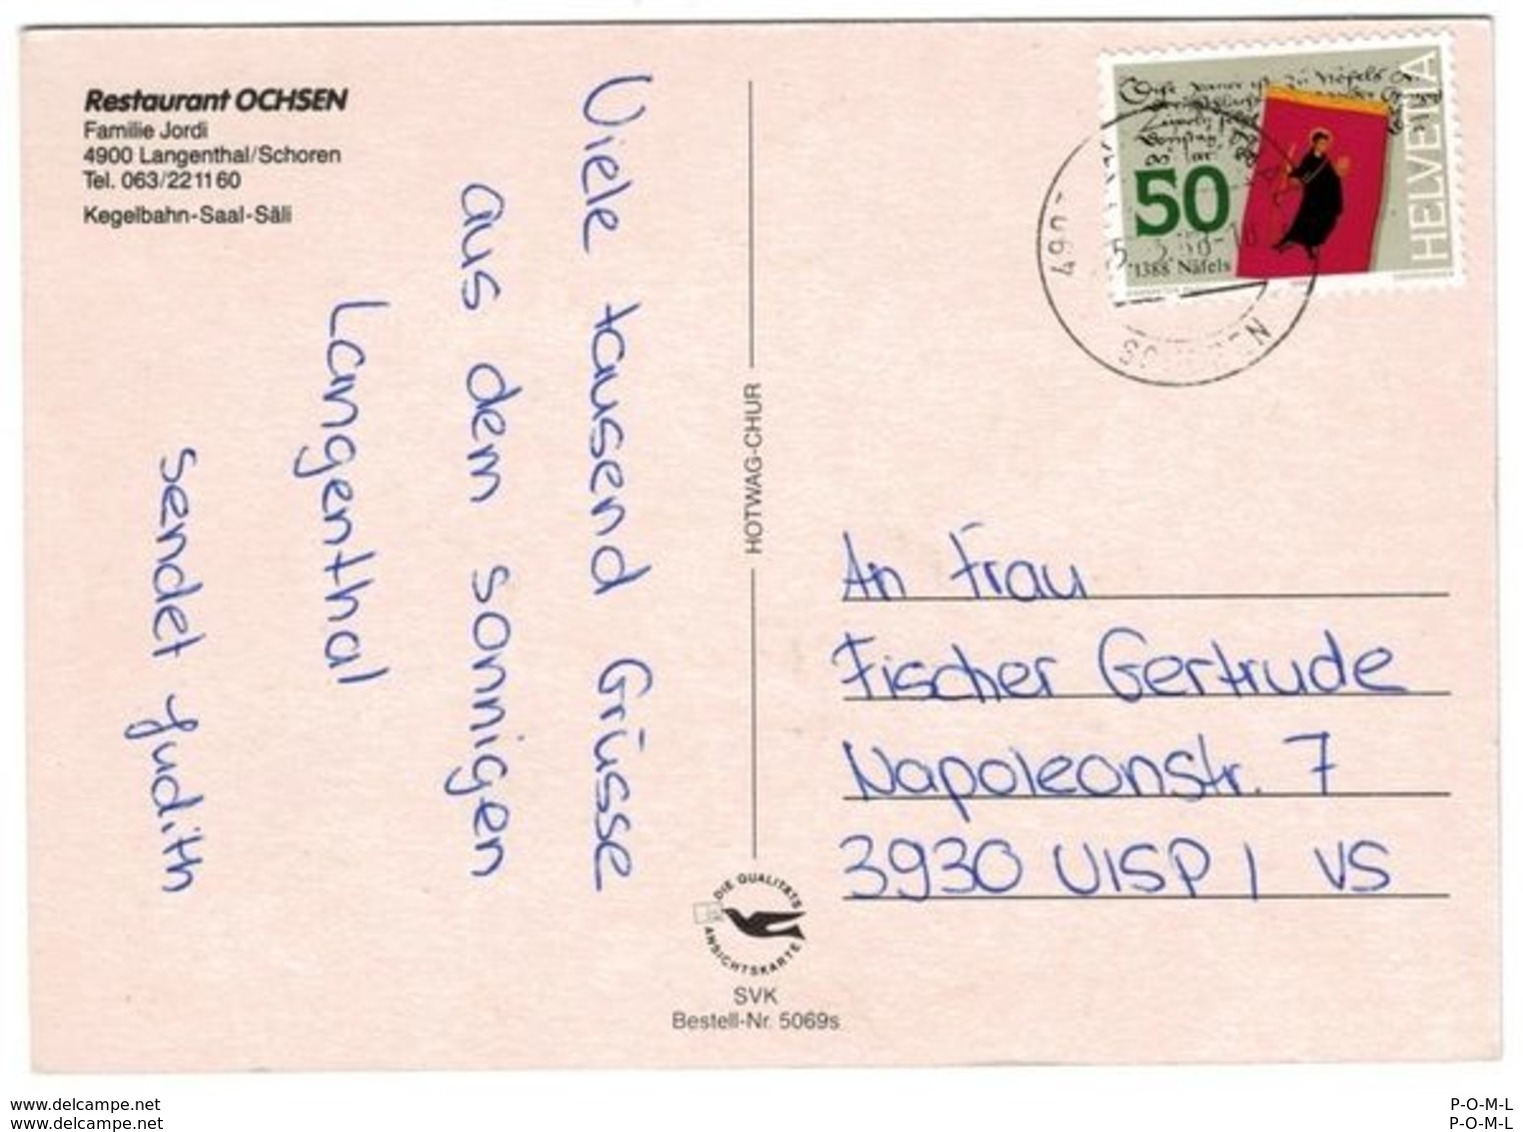 Restaurant OCHSEN
Familie Jordi
4900 Langenthal/Schoren
Tel. 063/22 11 60
Kegelbahn-Saal-Säli
Viele tausend Grüsse
aus dem sonnigen
Langenthal
sendet Judith
HOTWAG-CHUR
DIE QUALITÄTS
ANSICHTSKARTE
SVK
Bestell-Nr. 5069s
50
1388 Näfels
HELVETIA
An Frau
Fischer Gertrude
Napoleonstr. 7
3930 VISP / VS
www.delcampe.net
www.delcampe.net
P-O-M-L
P-O-M-L